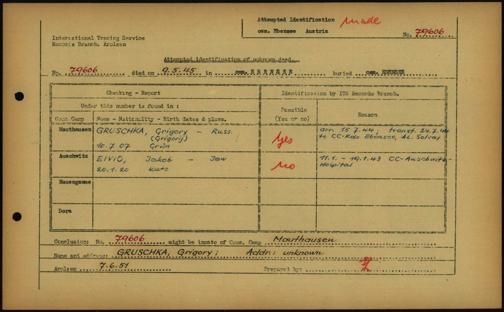 Attempted Identification made
cem. Ebensee Austria
International Tracing Service
Records Branch, Arolsen
No. 79606
Attempted identification of unknown dead.
No. 79606 died on 9.5.45 in cem. EBENSEE buried cem. EBENSEE
Checking - Report
Identification by ITS Records Branch.
Under this number is found in :
Possible
(Yes or no)
Reason
Conc Camp
Name - Nationality - Birth dates & place.
Mauthausen
GRUSCHKA, Grigory - Russ.
(Grigorij)
10.7.07 Grün
Yes
arr. 15.7.44; transf. 24.7.44
to CC-Kdo Ebensee, AL Solvay
Auschwitz
EIVIG, Jakob - Jew
20.1.20
no
11.1. - 19.1.43 CC-Auschwitz-
Hospital
Dora
Conclusion: No. 79606 might be inmate of Conc. Camp Mauthausen
Name and address: GRUSCHKA, Grigory; Addr: unknown
Arolsen 7.6.51 Prepared by: